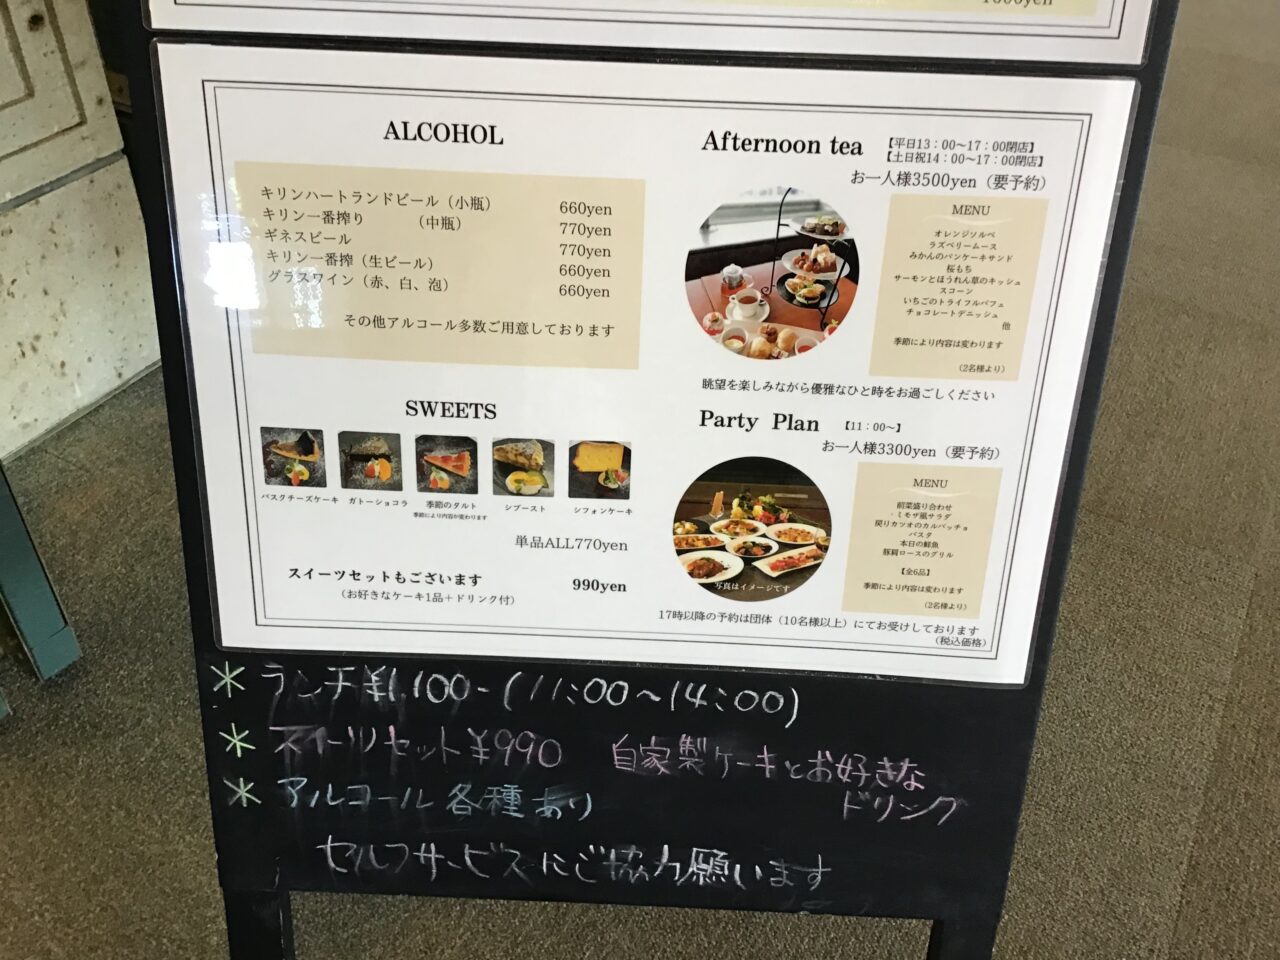 ALCOHOL
キリンハートランドビール（小瓶） 660yen
キリン一番搾り （中瓶） 770yen
ギネスビール 770yen
キリン一番搾（生ビール） 660yen
グラスワイン（赤、白、泡） 660yen
その他アルコール多数ご用意しております
SWEETS
バスクチーズケーキ ガトーショコラ 季節のタルト シブースト シフォンケーキ
季節により内容が変わります
単品ALL770yen
スイーツセットもございます 990yen
（お好きなケーキ1品＋ドリンク付）
Afternoon tea 【平日13：00〜17：00閉店】
【土日祝14：00〜17：00閉店】
お一人様3500yen（要予約）
MENU
オレンジソルベ
ラズベリームース
みかんのパンケーキサンド
桜もち
サーモンとほうれん草のキッシュ
スコーン
いちごのトライフルパフェ
チョコレートデニッシュ
他
季節により内容は変わります
（2名様より）
眺望を楽しみながら優雅なひと時をお過ごしください
Party Plan 【11：00〜】
お一人様3300yen（要予約）
MENU
前菜盛り合わせ
・ミモザ風サラダ
戻りカツオのカルパッチョ
パスタ
本日の鮮魚
豚肩ロースのグリル
【全6品】
季節により内容は変わります
（2名様より）
写真はイメージです
17時以降の予約は団体（10名様以上）にてお受けしております
（税込価格）
＊ ランチ¥1,100-（11:00〜14:00）
＊ スイーツセット¥990 自家製ケーキとお好きな
ドリンク
＊ アルコール各種あり
セルフサービスにご協力願います